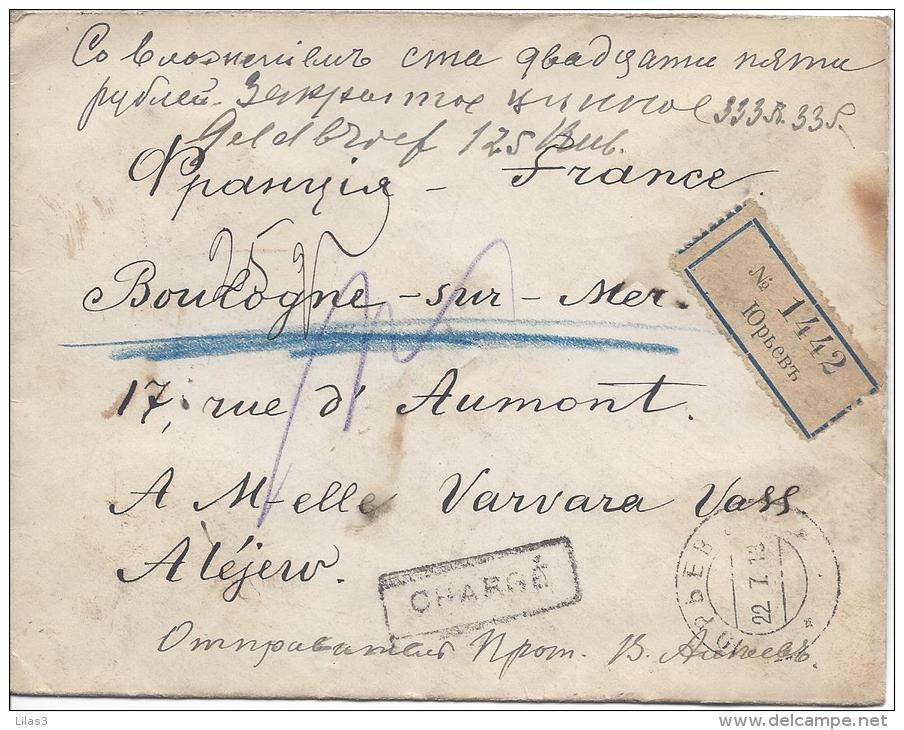 Со вложеніемъ ста двадцати пяти
рублей. Закрытое цѣнное 333 33
Geldbrief 125 Rub.
Франція - France.
Boulogne-sur-Mer.
17, rue d'Aumont.
A M-elle Varvara Vass.
Aléjew.
№ 1442
Юрьевъ
CHARGÉ
22.7.13
Отправитель Прот. В. Алѣевъ.
Lilas3
www.delcampe.net